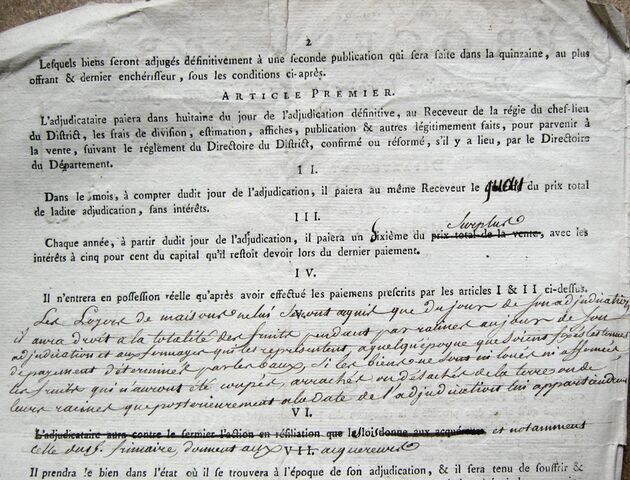 2
Lesquels biens seront adjugés définitivement à une seconde publication qui sera faite dans la quinzaine, au plus
offrant & dernier enchérisseur, sous les conditions ci-après.
ARTICLE PREMIER.
L'adjudicataire paiera dans huitaine du jour de l'adjudication définitive, au Receveur de la régie du chef-lieu
du District, les frais de division, estimation, affiches, publication & autres légitimement faits, pour parvenir à
la vente, suivant le réglement du Directoire du District, confirmé ou réformé, s'il y a lieu, par le Directoire
du Département.
II.
Dans le mois, à compter dudit jour de l'adjudication, il paiera au même Receveur le quart du prix total
de ladite adjudication, sans intérêts.
III.
Surplus
Chaque année, à partir dudit jour de l'adjudication, il paiera un sixième du prix total de la vente, avec les
intérêts à cinq pour cent du capital qu'il restoit devoir lors du dernier paiement.
IV.
Il n'entrera en possession réelle qu'après avoir effectué les paiemens prescrits par les articles I & II ci-dessus.
Les Loyers de maisons ne lui seront acquis que du jour de son adjudication,
il aura droit à la totalité des fruits pendant par racines au jour de son
adjudication et aux fermages qui les représentent, à quelqu'époque que soient fixés les termes
de payement déterminés par les baux, si les biens ne sont ni loués ni affermés
les fruits qui n'auront été coupés, arrachés ou détachés de la terre ou de
leurs racines que postérieurement à la date de l'adjudication lui appartiendront
VI.
L'adjudicataire aura contre le fermier l'action en résiliation que les lois donne aux acquéreurs et notamment
celle du primaire, donnent aux acquéreurs
VII.
Il prendra le bien dans l'état où il se trouvera à l'époque de son adjudication, & il sera tenu de souffrir &